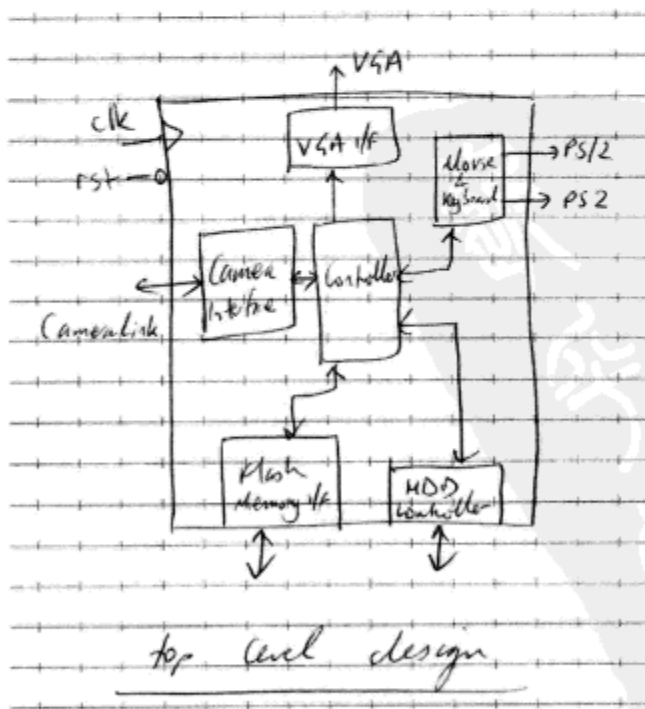 VGA
clk
VGA I/F
Mouse
&
Keyboard
PS/2
rst
PS2
Camera
Interface
Controller
CameraLink
Flash
Memory I/F
HDD
Controller
top level design